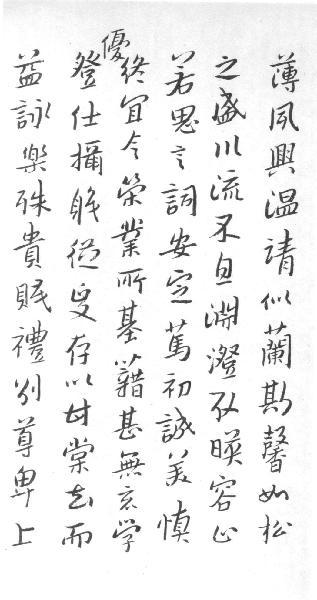 薄夙興温清似蘭斯馨如松
之盛川流不息淵澄取暎容止
若思言詞安定篤初誠美慎
終宜令榮業所基籍甚無竟学
優登仕攝職從政存以甘棠去而
益詠樂殊貴賤禮別尊卑上